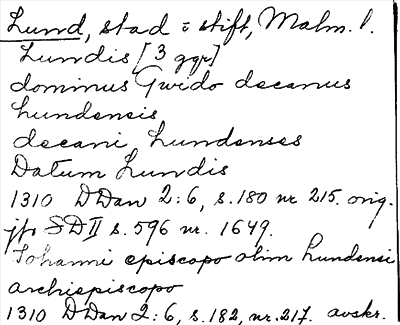 Lund, stad o stift, Malm. l.
Lundis [3 ggr]
dominus Gwido decanus
Lundensis
decani Lundenses
Datum Lundis
1310 DDan 2:6, s. 180 nr 215. orig.
jfr SD II s. 596 nr. 1649.
Johanni episcopo olim Lundensi
archiepiscopo
1310 DDan 2:6, s. 182, nr. 217. avskr.